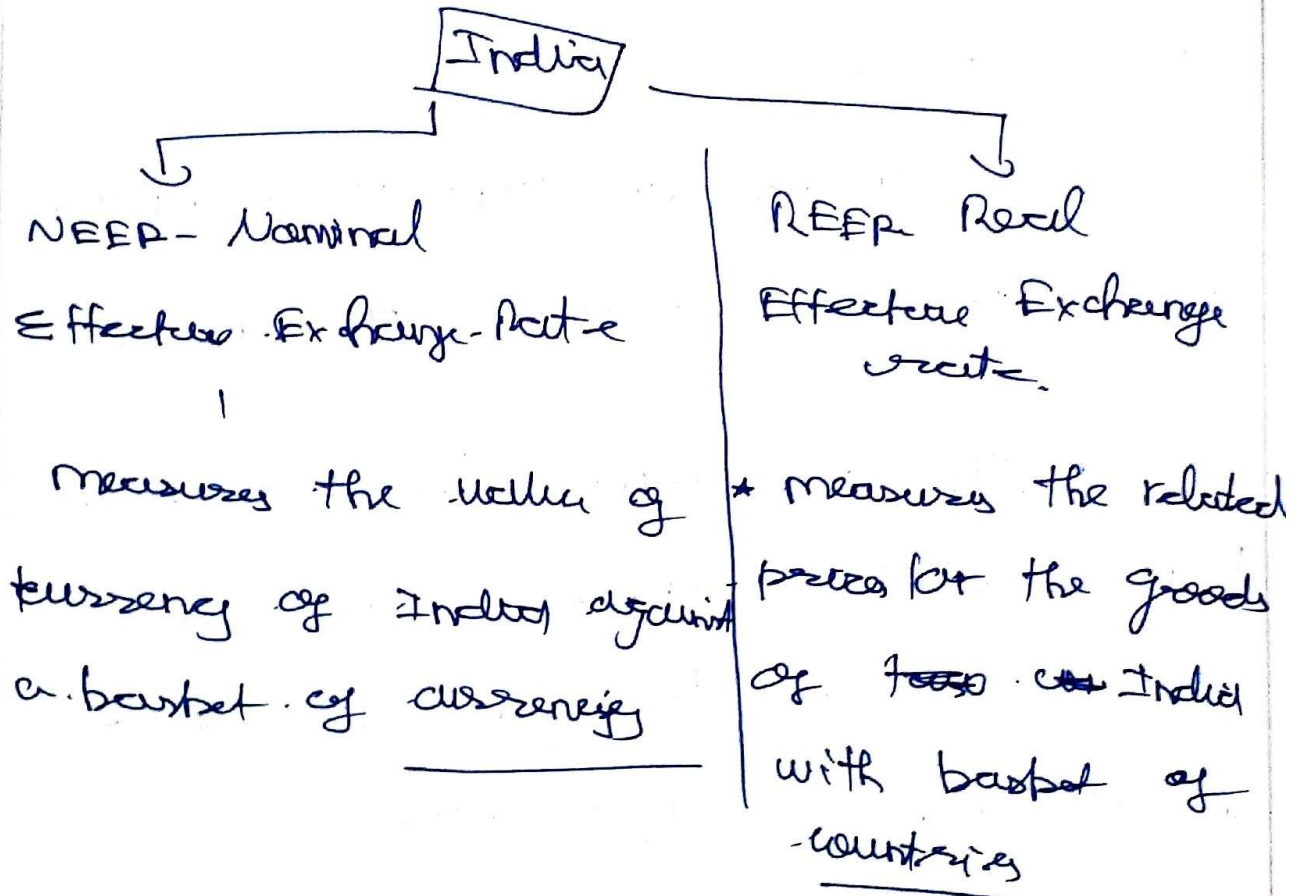 India
NEER - Nominal
Effective Exchange Rate
measures the value of
currency of India against
a basket of currencies
REER Real
Effective Exchange
rate.
* measures the related
prices for the goods
of India
with basket of
countries